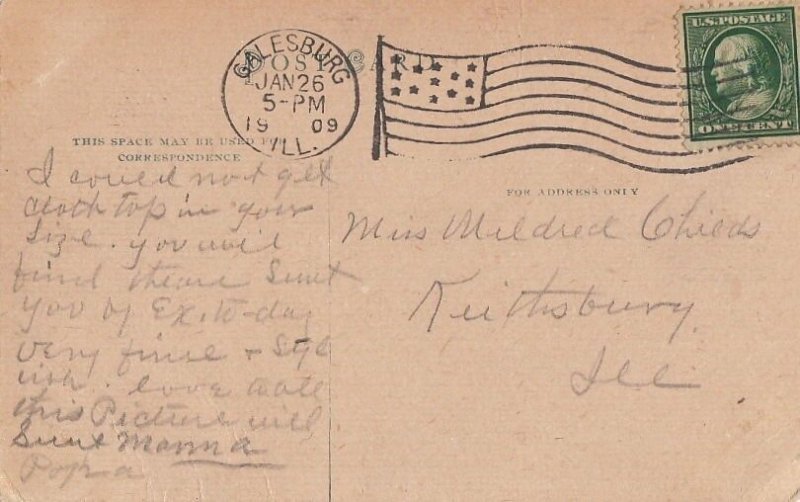 POST CARD
GALESBURG
JAN 26
5-PM
1909
ILL.
U.S. POSTAGE
ONE CENT
THIS SPACE MAY BE USED FOR
CORRESPONDENCE
FOR ADDRESS ONLY
I could not get
cloth top in your
size. you will
find these Sent
you by Ex. to-day
very fine & Styl
ish. love
this Picture will
Suit Mamma
Popa
Miss Mildred Childs
Keithsburg
Ill